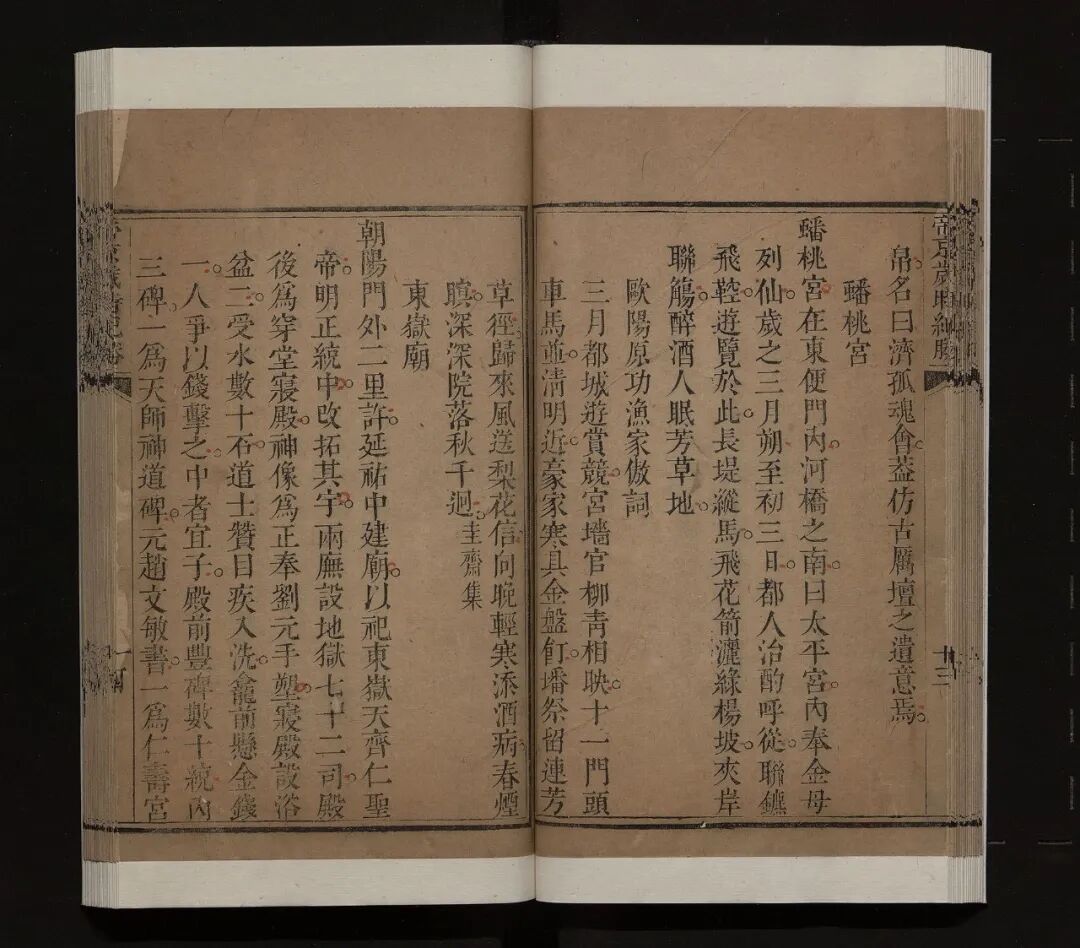 帝京歲時紀勝
十三
帛名曰濟孤魂會蓋仿古厲壇之遺意焉
蟠桃宮
蟠桃宮在東便門內河橋之南曰太平宮內奉金母
列仙歲之三月朔至初三日都人治酌呼從聯鑣
飛鞚遊覽於此長堤縱馬飛花箭灑綠楊坡夾岸
聯觴醉酒人眠芳草地
歐陽原功漁家傲詞
三月都城遊賞競宮墻官柳青相映十一門頭
車馬並淸明近豪家寒具金盤飣墦祭留連芳
草徑歸來風送梨花信向晚輕寒添酒病春煙
暝深深院落秋千迥圭齋集
東嶽廟
朝陽門外二里許延祐中建廟以祀東嶽天齊仁聖
帝明正統中改拓其宇兩廡設地獄七十二司殿
後爲穿堂寢殿神像爲正奉劉元手塑寢殿設浴
盆二受水數十石道士贊目疾入洗龕前懸金錢
一人爭以錢擊之中者宜子殿前豐碑數十統內
三碑一爲天師神道碑元趙文敏書一爲仁壽宮